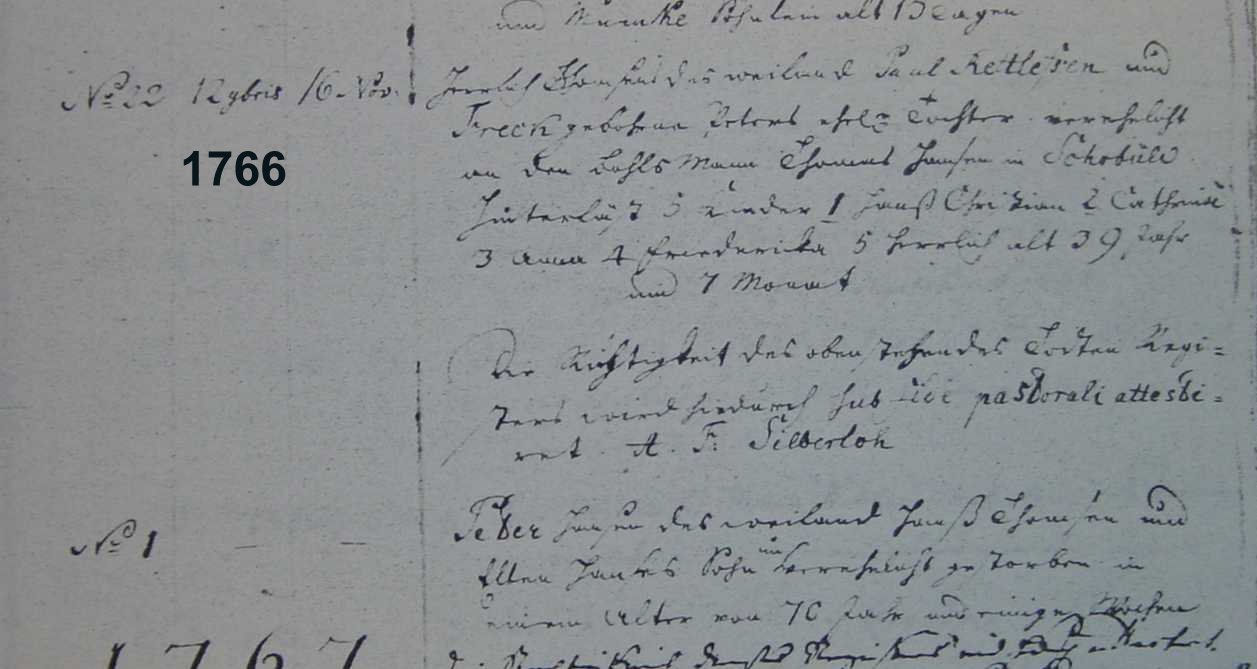 und Münke Sohnlein alt 13 Tagen
No 22 12 9bris 16 Nov. Herrlich Thomsens des weiland Paul Ketlesen und
1766
Freck gebohrne Peters ehel: Tochter verehelicht
an den Bohls Mann Thomas Hansen in Schobüll
hinterläst 5 Kinder 1 Hanß Christian 2 Cathrina
3 Anna 4 Friedericka 5 Herrlich alt 39 Jahr
und 7 Monat
Die Richtigkeit des obenstehendes Todten Regi=
sters wird hiedurch sub fide pastorali attesti=
ret. A. F. Silberloh
No 1 — — Peter Hansen des weiland Hanß Thomsen und
Ellen Hanses Sohn unverehelicht gestorben in
einem Alter von 70 Jahr und einige Wochen
1767